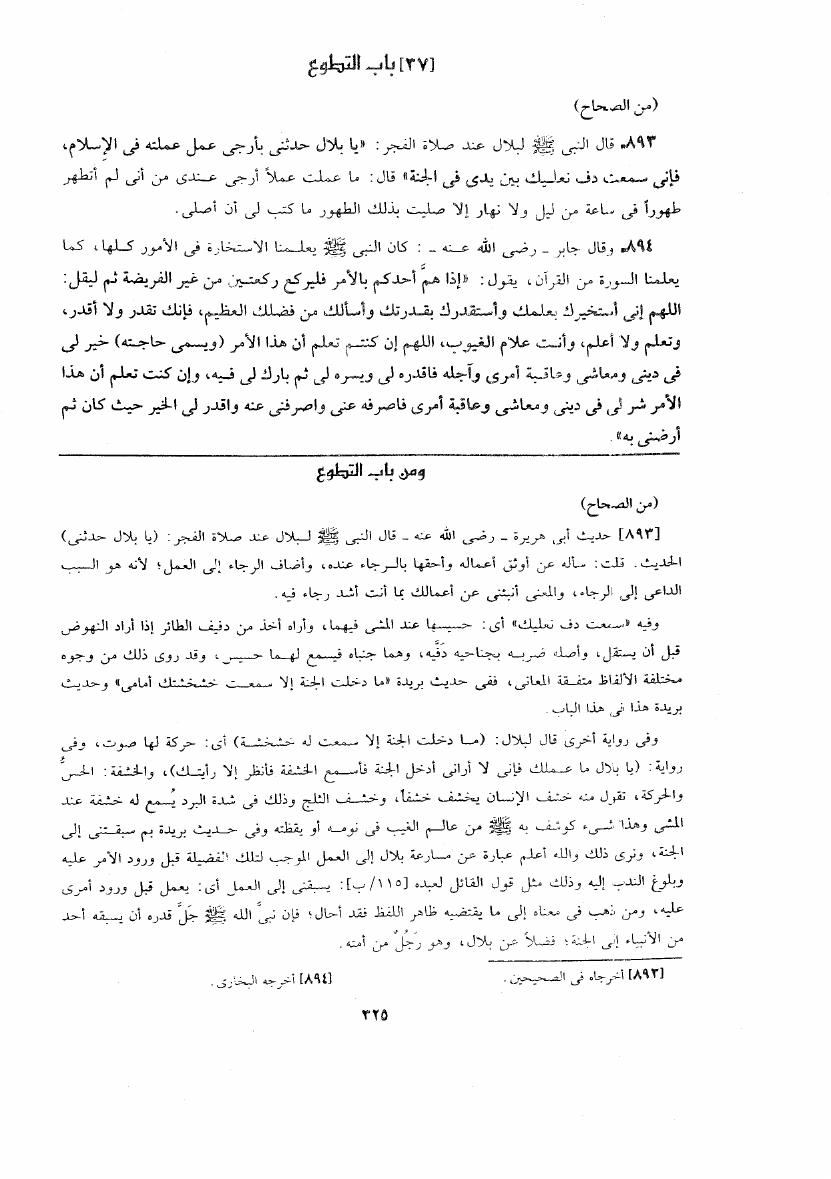 [٣٧] باب التطوع
(من الصحاح)
٨٩٣ـ قال النبى ﷺ لبلال عند صلاة الفجر: «يا بلال حدثنى بأرجى عمل عملته فى الإسلام،
فإنى سمعت دف نعليك بين يدى فى الجنة» قال: ما عملت عملاً أرجى عندى من أنى لم أتطهر
طهوراً فى ساعة من ليل ولا نهار إلا صليت بذلك الطهور ما كتب لى أن أصلى.
٨٩٤ـ وقال جابر ـ رضى الله عنه ـ : كان النبى ﷺ يعلمنا الاستخارة فى الأمور كلها، كما
يعلمنا السورة من القرآن، يقول: «إذا همَّ أحدكم بالأمر فليركع ركعتين من غير الفريضة ثم ليقل:
اللهم إنى أستخيرك بعلمك وأستقدرك بقدرتك وأسألك من فضلك العظيم، فإنك تقدر ولا أقدر،
وتعلم ولا أعلم، وأنت علام الغيوب، اللهم إن كنت تعلم أن هذا الأمر (ويسمى حاجته) خير لى
فى دينى ومعاشى وعاقبة أمرى وآجله فاقدره لى ويسره لى ثم بارك لى فيه، وإن كنت تعلم أن هذا
الأمر شر لى فى دينى ومعاشى وعاقبة أمرى فاصرفه عنى واصرفنى عنه واقدر لى الخير حيث كان ثم
أرضنى به».
ومن باب التطوع
(من الصحاح)
[٨٩٣] حديث أبى هريرة ـ رضى الله عنه ـ قال النبى ﷺ لبلال عند صلاة الفجر: (يا بلال حدثنى)
الحديث. قلت: سأله عن أوثق أعماله وأحقها بالرجاء عنده، وأضاف الرجاء إلى العمل؛ لأنه هو السبب
الداعى إلى الرجاء، والمعنى أنبئنى عن أعمالك بما أنت أشد رجاء فيه.
وفيه «سمعت دف نعليك» أى: حسيسها عند المشى فيهما، وأراه أخذ من دفيف الطائر إذا أراد النهوض
قبل أن يستقل، وأصله ضربه بجناحيه دفَّيه، وهما جنباه فيسمع لهما حسيس، وقد روى ذلك من وجوه
مختلفة الألفاظ متفقة المعانى، ففى حديث بريدة «ما دخلت الجنة إلا سمعت خشخشتك أمامى» وحديث
بريدة هذا فى هذا الباب.
وفى رواية أخرى قال لبلال: (ما دخلت الجنة إلا سمعت له خشخشة) أى: حركة لها صوت، وفى
رواية: (يا بلال ما عملك فإنى لا أرانى أدخل الجنة فأسمع الخشفة فأنظر إلا رأيتك)، والخشفة: الحسُّ
والحركة، تقول منه خشف الإنسان يخشف خشفاً، وخشف الثلج وذلك فى شدة البرد يُسمع له خشفة عند
المشى وهذا شىء كوشف به ﷺ من عالم الغيب فى نومه أو يقظته وفى حديث بريدة بم سبقتنى إلى
الجنة، ونرى ذلك والله أعلم عبارة عن مسارعة بلال إلى العمل الموجب لتلك الفضيلة قبل ورود الأمر عليه
وبلوغ الندب إليه وذلك مثل قول القائل لعبده [١١٥/ب]: يسبقنى إلى العمل أى: يعمل قبل ورود أمرى
عليه، ومن ذهب فى معناه إلى ما يقتضيه ظاهر اللفظ فقد أحال؛ فإن نبىَّ الله ﷺ جَلَّ قدره أن يسبقه أحد
من الأنبياء إلى الجنة؛ فضلاً عن بلال، وهو رَجُلٌ من أمته.
[٨٩٣] أخرجاه فى الصحيحين.
[٨٩٤] أخرجه البخارى.
٣٢٥